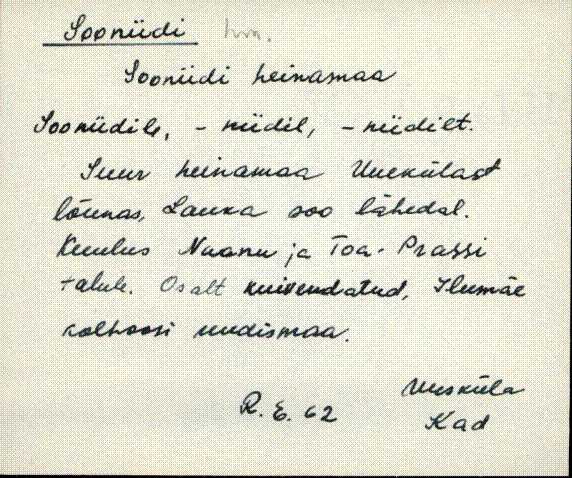 Sooniidi hm.
Sooniidi heinamaa
Sooniidile, - niidil, - niidilt.
Suur heinamaa Uuekülast
lõunas, Lauka soo lähedal.
Kuulus Naanu ja Toa-Prassi
talule. Osalt kuivendatud, Ilumäe
kolhoosi uudismaa.
R. E. 62
Uusküla
Kad